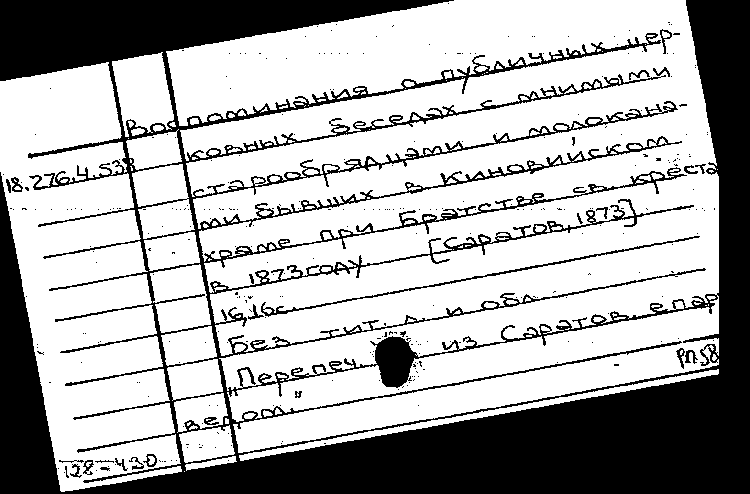 Воспоминания о публичных цер-
18.276.4.538 ковных беседах с мнимыми
старообрядцами и молокана-
ми, бывших в Киновийском
храме при Братстве св. креста
в 1873 году. [Саратов, 1873]
16, 16 с.
Без тит. л. и обл.
"Перепеч. из Саратов. епар
ведом."
РП58
128-430